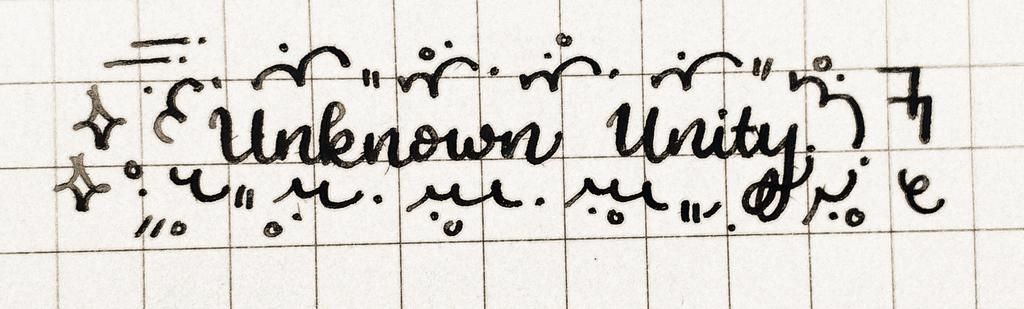 Unknown Unity